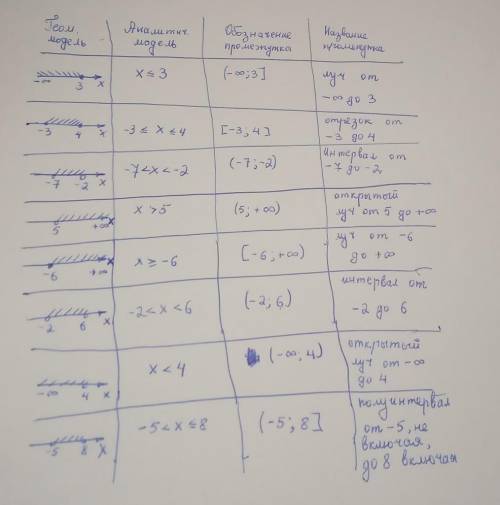 Геом. модель Аналитич. модель Обозначение промежутка Название промежутка
-∞ 3 x x ≤ 3 (-∞; 3] луч от -∞ до 3
-3 4 x -3 ≤ x ≤ 4 [-3; 4] отрезок от -3 до 4
-7 -2 x -7 < x < -2 (-7; -2) интервал от -7 до -2
5 +∞ x x > 5 (5; +∞) открытый луч от 5 до +∞
-6 +∞ x x ≥ -6 [-6; +∞) луч от -6 до +∞
-2 6 x -2 < x < 6 (-2; 6) интервал от -2 до 6
-∞ 4 x x < 4 (-∞; 4) открытый луч от -∞ до 4
-5 8 x -5 < x ≤ 8 (-5; 8] полуинтервал от -5, не включая, до 8 включая